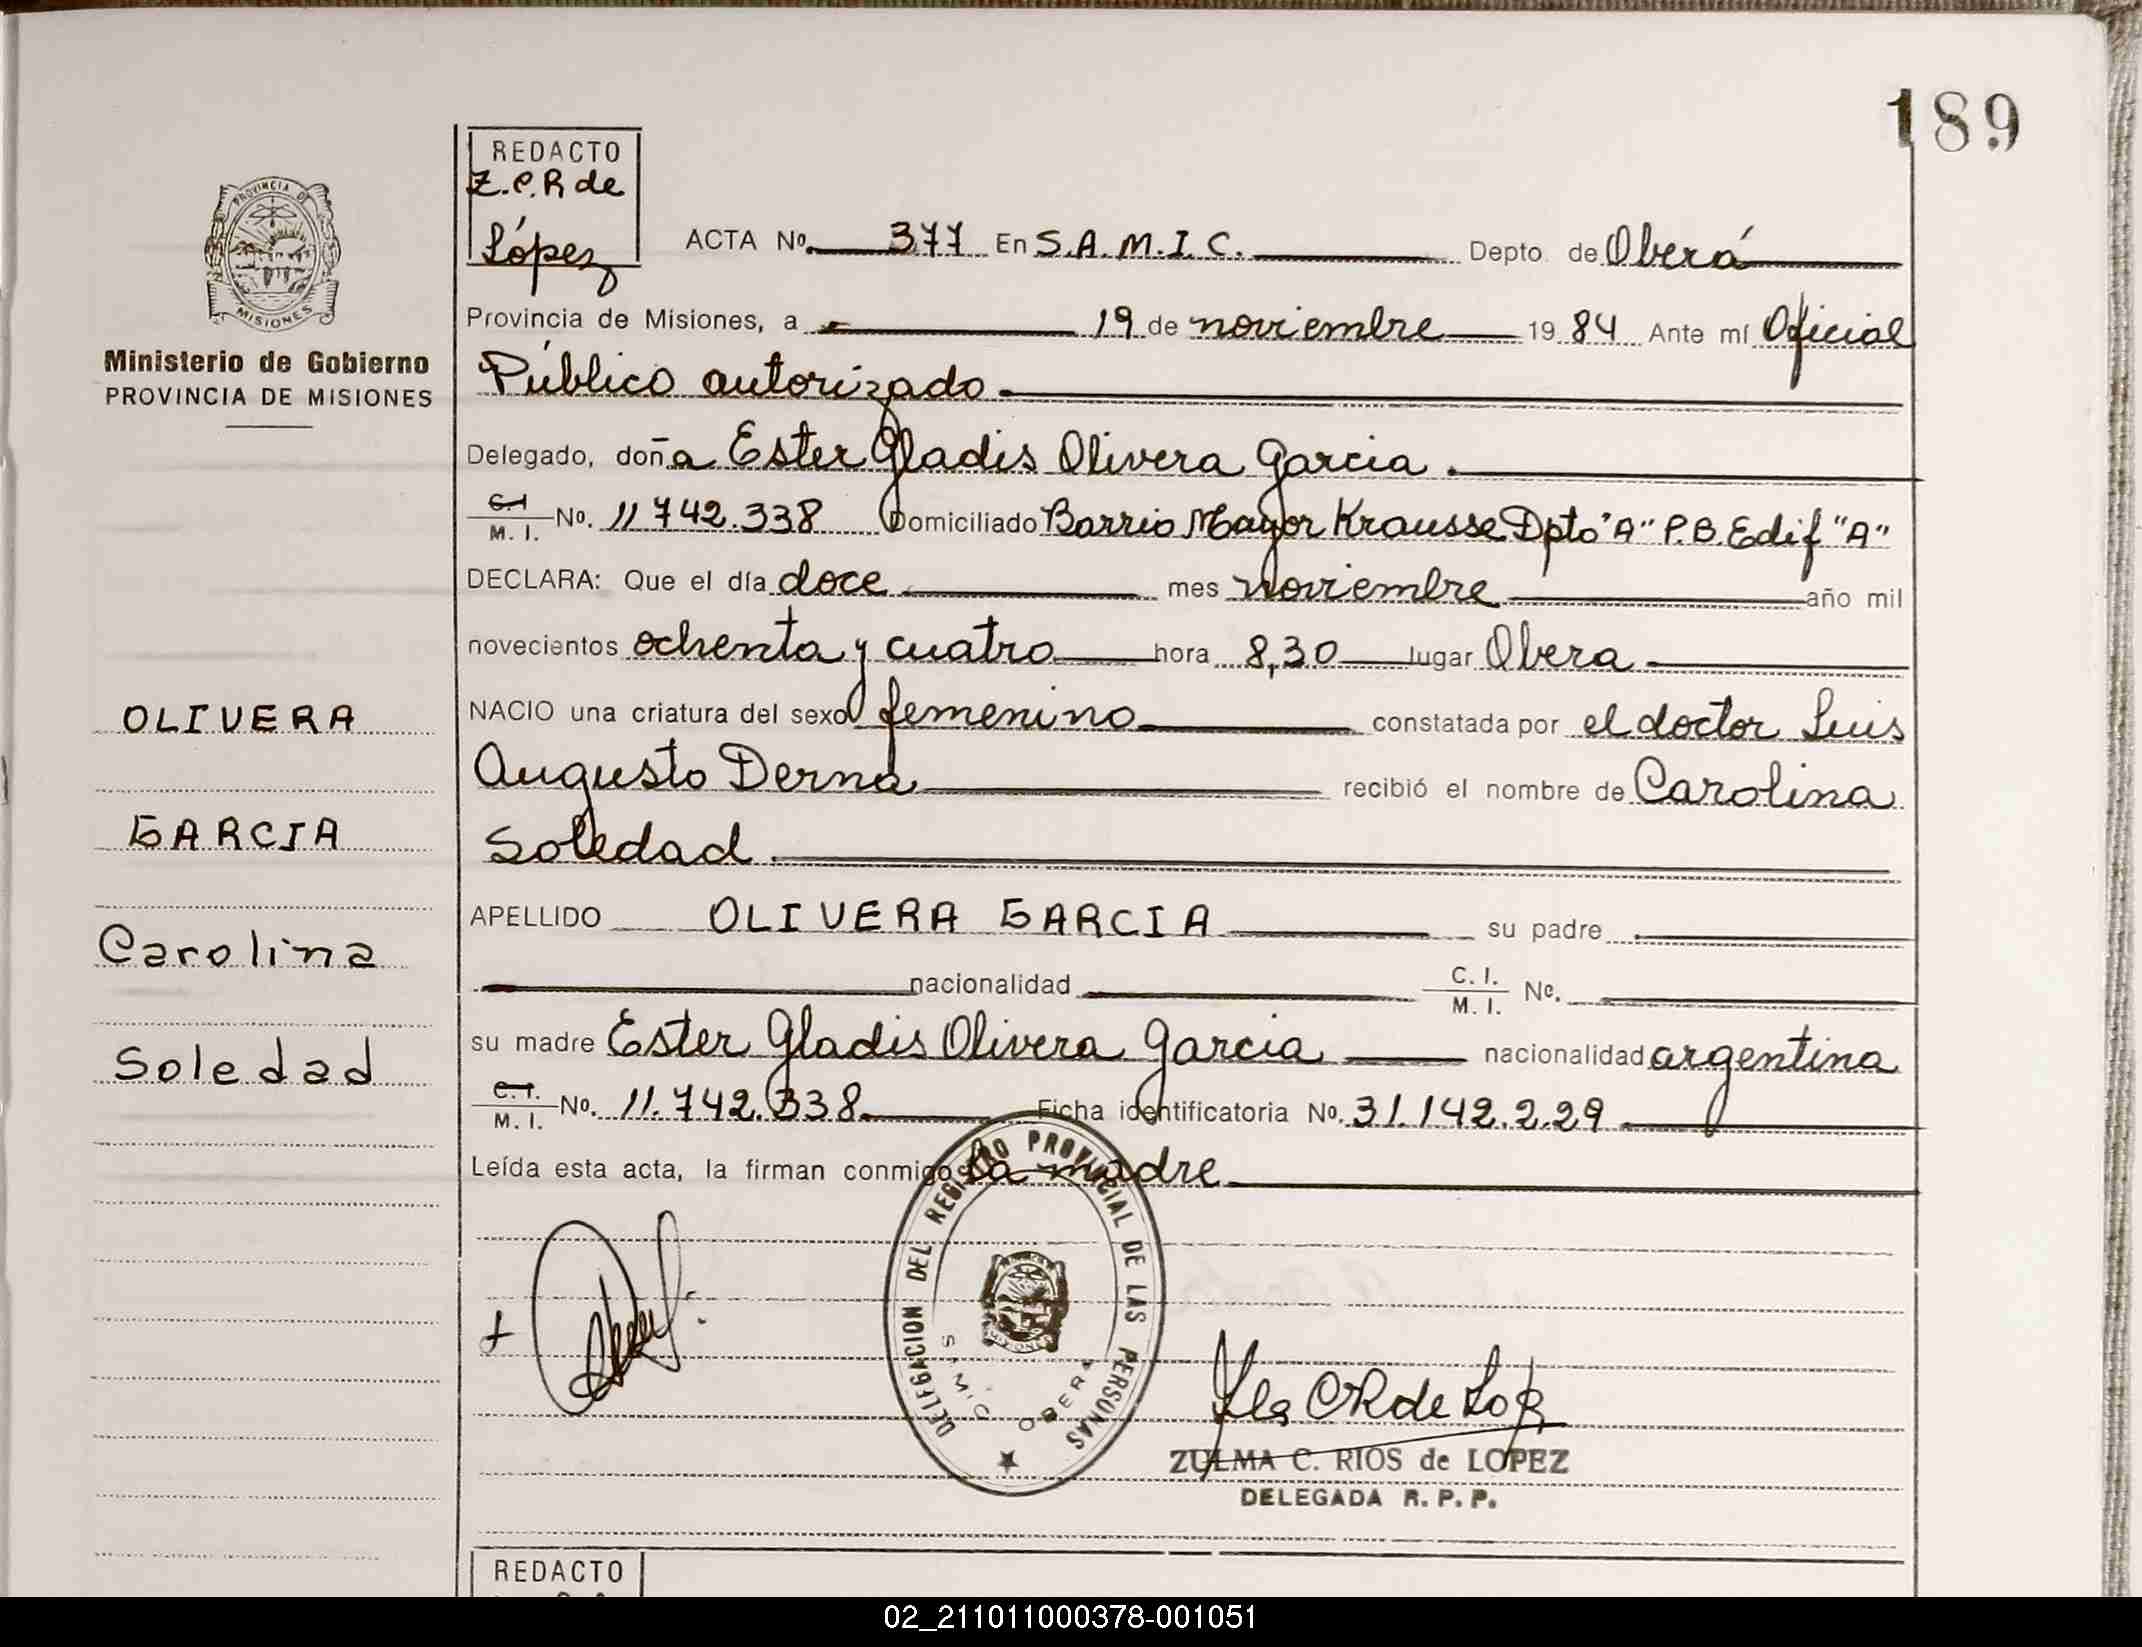 189
REDACTO
Z.C.R de
López
ACTA No. 377 En S.A.M.I.C. Depto. de Oberá
Provincia de Misiones, a 19 de noviembre 19 84 Ante mí Oficial
Público autorizado
Delegado, doña Ester Gladis Olivera Garcia.
C.I. M. I. No. 11 742.338 Domiciliado Barrio Mayor Krausse Dpto "A" P.B. Edif "A"
DECLARA: Que el día doce mes noviembre año mil
novecientos ochenta y cuatro hora 8,30 lugar Obera
NACIO una criatura del sexo femenino constatada por el doctor Luis
Augusto Derna recibió el nombre de Carolina
Soledad
APELLIDO OLIVERA GARCIA su padre
nacionalidad C. I. M. I. No.
su madre Ester Gladis Olivera Garcia nacionalidad argentina
C.I. M. I. No. 11.742.338 Ficha identificatoria No. 31.142.229
Leída esta acta, la firman conmigo la madre
PROVINCIA DE
MISIONES
Ministerio de Gobierno
PROVINCIA DE MISIONES
OLIVERA
GARCIA
Carolina
Soledad
DELEGACION DEL REGISTRO PROVINCIAL DE LAS PERSONAS
S.A.M.I.C. OBERA
ZULMA C. RIOS de LOPEZ
DELEGADA R. P. P.
REDACTO
02_211011000378-001051